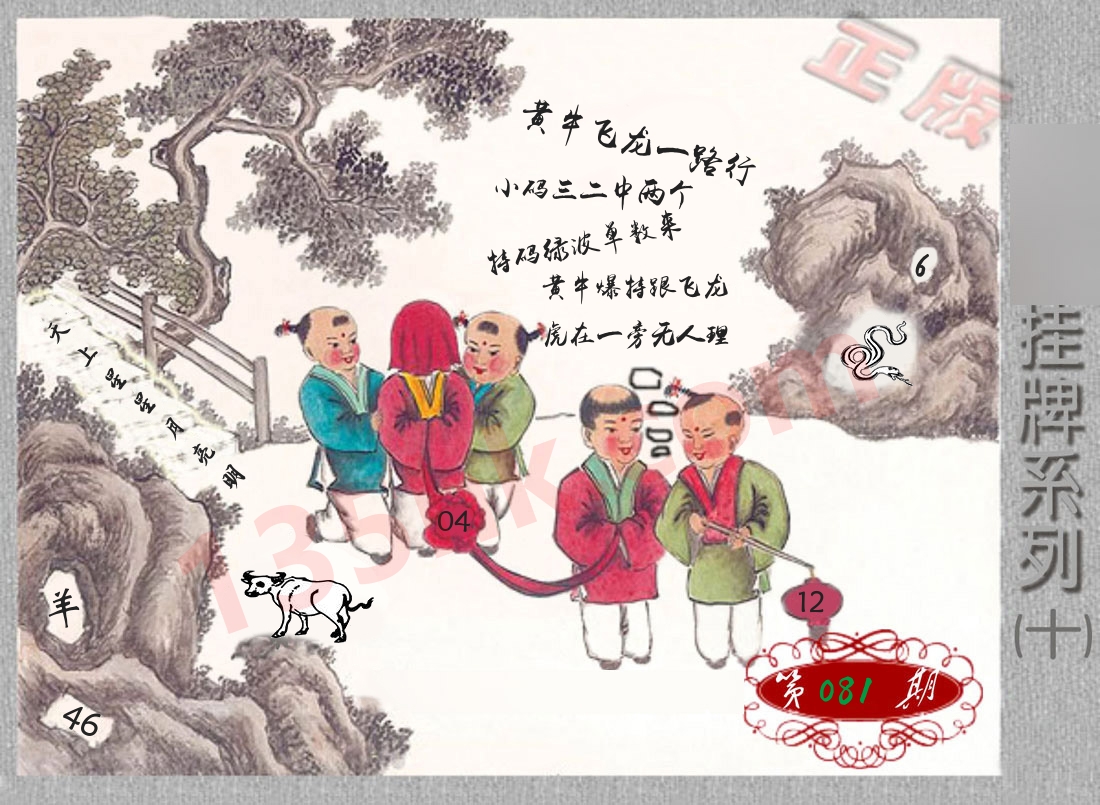 正版
黄牛飞龙一路行
小码三二中两个
特码绿波单数来
黄牛爆特跟飞龙
虎在一旁无人理
6
天上星星月亮明
04
12
羊
46
第081期
挂牌系列(十)